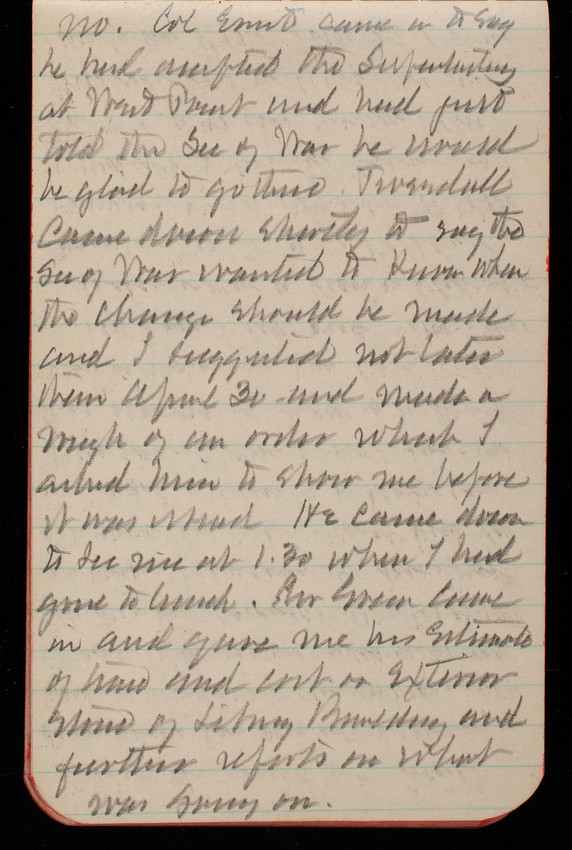 no. Col Ernst came in to say
he had accepted the Superintency
at West Point and had just
told the Sec of War he would
be glad to go there. Tweedall
came down shortly to say the
Sec of War wanted to know when
the change should be made
and I suggested not later
than April 30 and made a
rough of an order which I
asked him to show me before
it was issued. He came down
to see me at 1.30 when I had
gone to lunch. Green came
in and gave me his Estimate
of time and cost on Exterior
Stone of Library Building and
further reports on what
was going on.